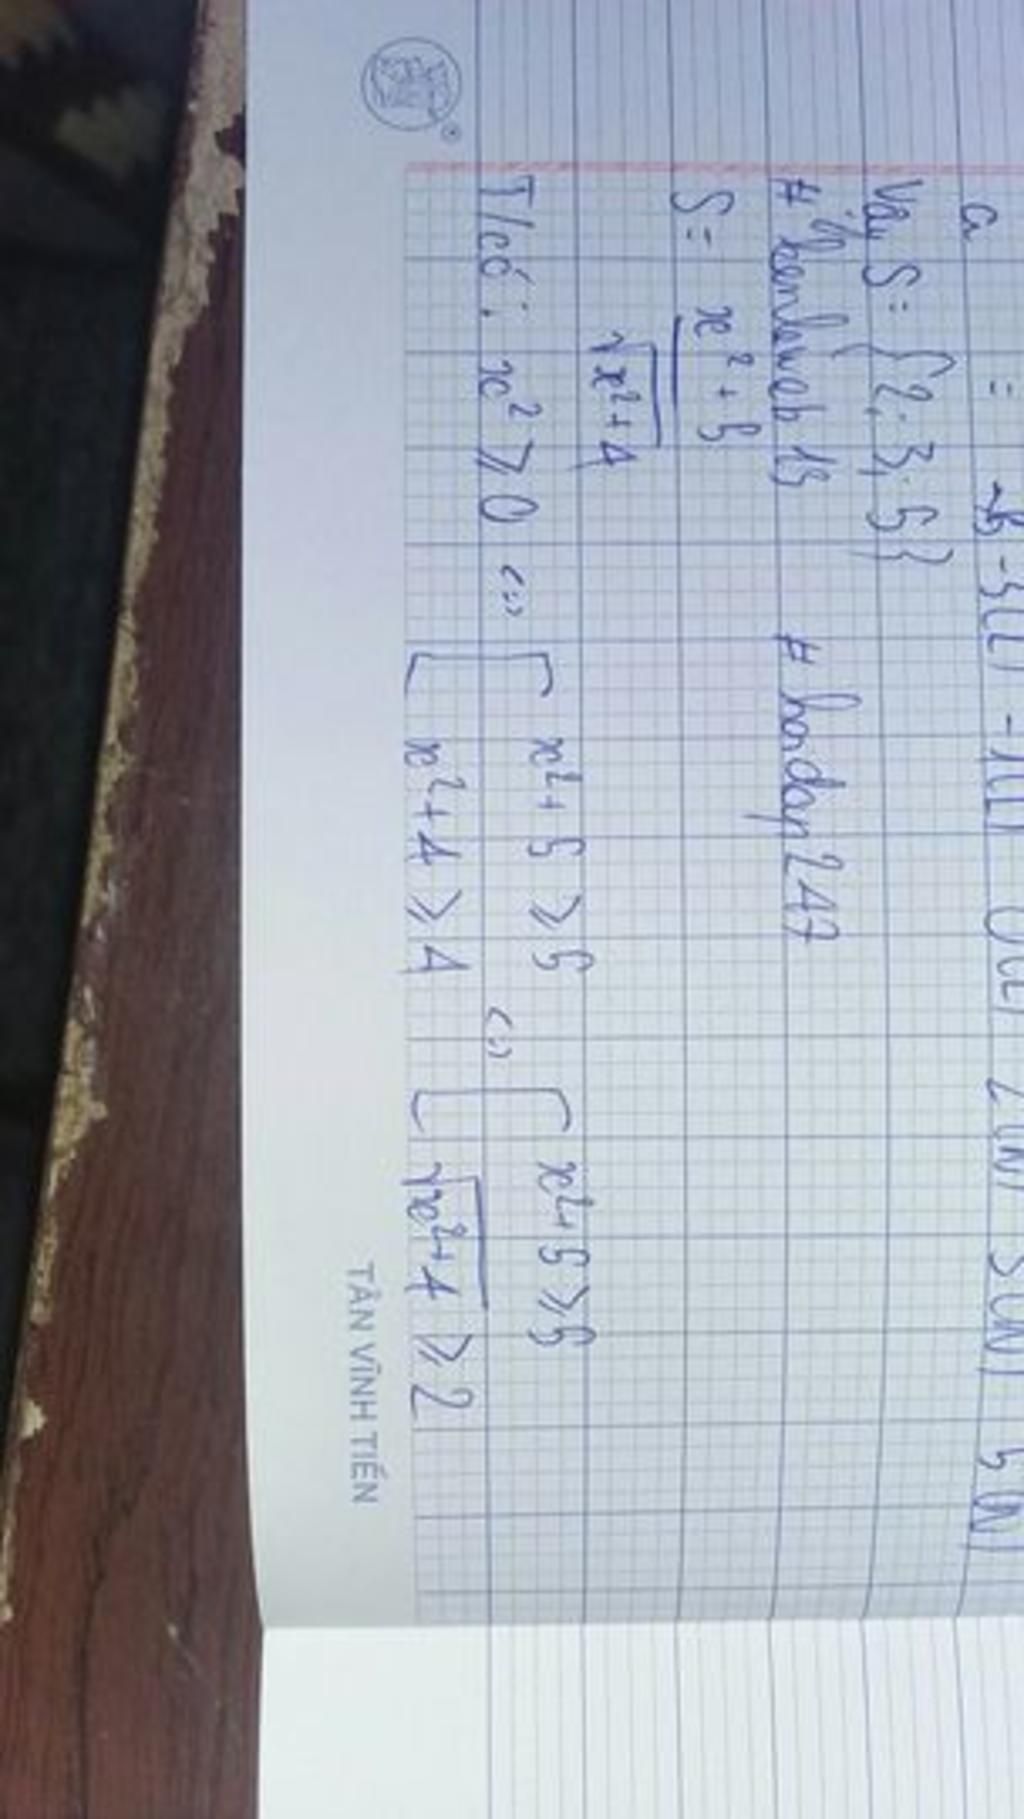 Vậy S = {2; 3; 5}
# kenlaweb 15 # hoidap247
S = x² + 5
√x²+4
T/có: x² ⩾ 0 <=> [ x² + 5 ⩾ 5 <=> [ x² + 5 ⩾ 5
x² + 4 ⩾ 4 √x²+4 ⩾ 2
TÂN VĨNH TIẾN